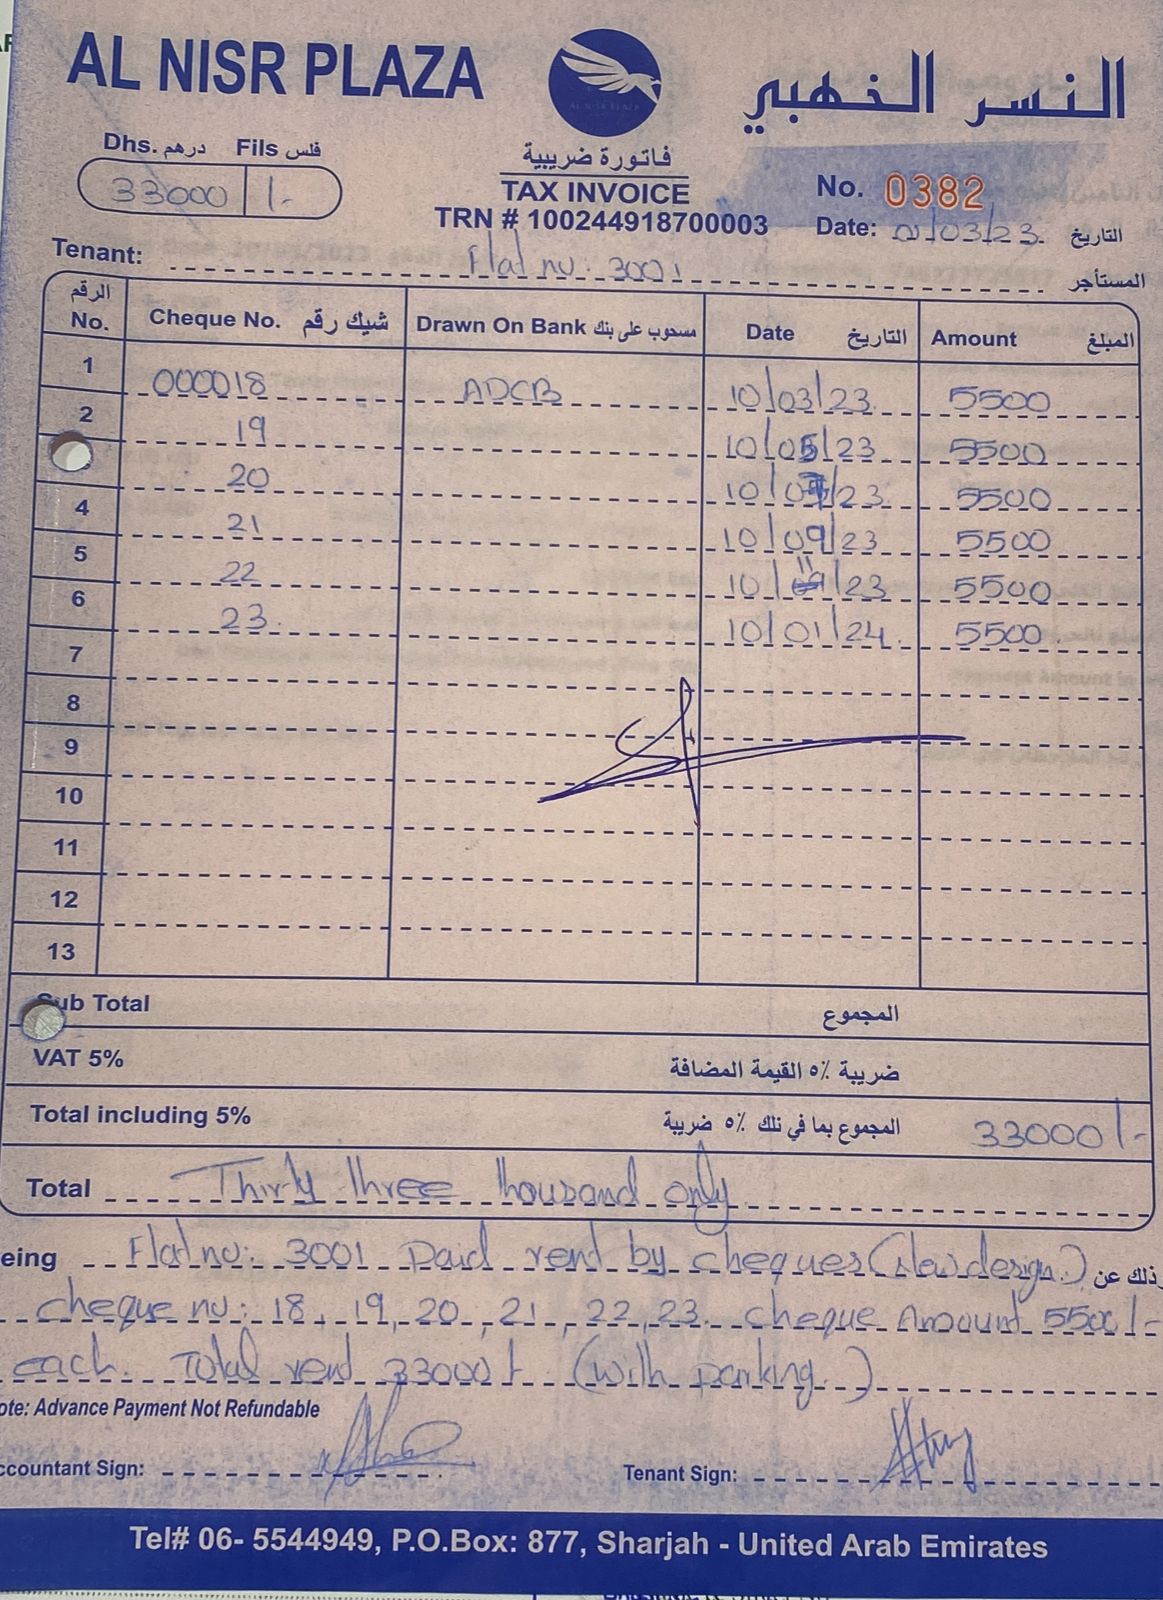 AL NISR PLAZA
AL NISR PLAZA
النسر الذهبي
Dhs. درهم Fils فلس
33000 /-
فاتورة ضريبية
TAX INVOICE
TRN # 100244918700003
No. 0382
Date: 01/03/23 التاريخ
Tenant: Flat no: 3001 المستأجر
الرقم No. Cheque No. شيك رقم Drawn On Bank مسحوب على بنك Date التاريخ Amount المبلغ
1 000018 ADCB 10/03/23 5500
2 19 10/05/23 5500
20 10/07/23 5500
4 21 10/09/23 5500
5 22 10/11/23 5500
6 23 10/01/24 5500
7
8
9
10
11
12
13
Sub Total المجموع
VAT 5% ضريبة ٥٪ القيمة المضافة
Total including 5% المجموع بما في تلك ٥٪ ضريبة 33000/-
Total Thirty three thousand only
eing Flat no: 3001 Paid rent by cheques (New design) وذلك عن
cheque no: 18, 19, 20, 21, 22, 23. cheque Amount 5500/-
each. Total rent 33000/- (with parking.)
ote: Advance Payment Not Refundable
ccountant Sign: Tenant Sign:
Tel# 06- 5544949, P.O.Box: 877, Sharjah - United Arab Emirates